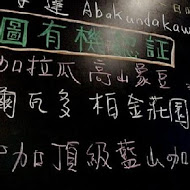 達 Abakundakaw
圖有機認証
加拉瓜 高山象豆
爾瓦多 柏金莊園
加 頂級藍山咖